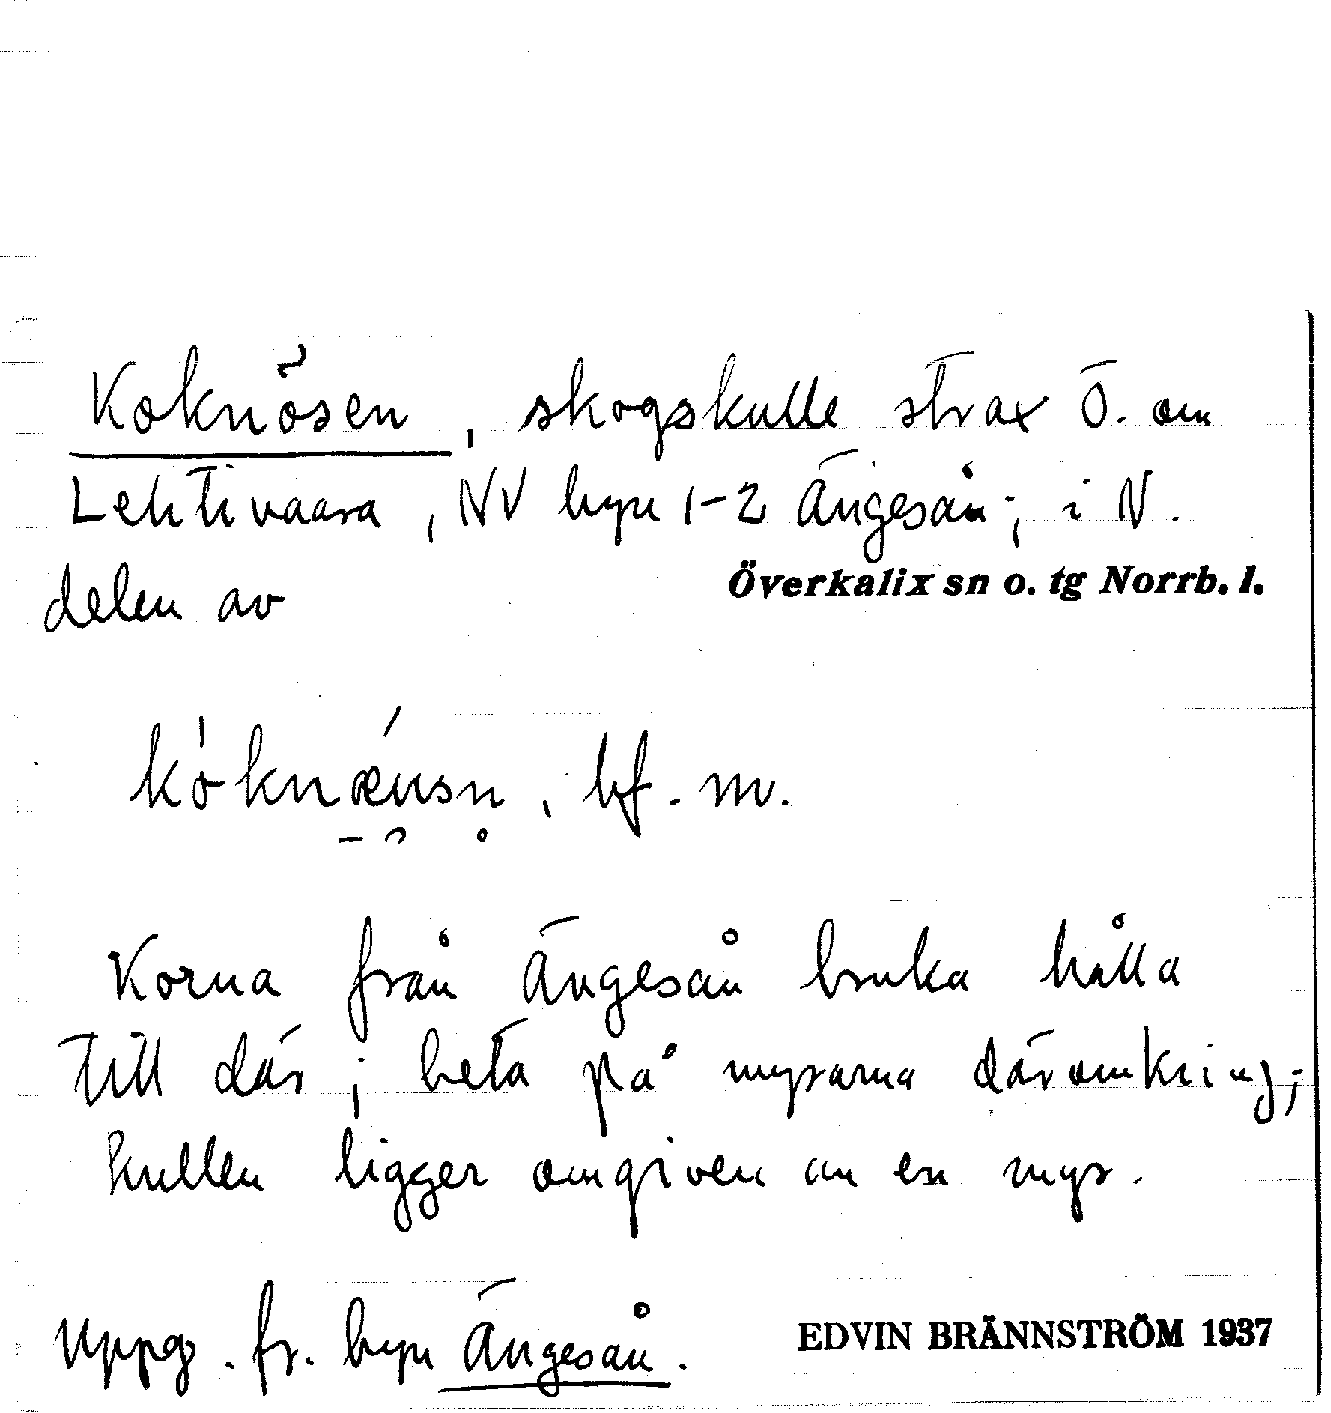 Koknösen, skogskulle strax Ö. om
Lehtivaara, NV byn 1-2 Ängesån; i N.
delen av Överkalix sn o. tg Norrb. l.
bf. m.
Korna från Ängesån bruka hålla
till där; beta på myrarna däromkring;
kullen ligger omgiven av en myr.
Uppg. fr. byn Ängesån.
EDVIN BRÄNNSTRÖM 1937